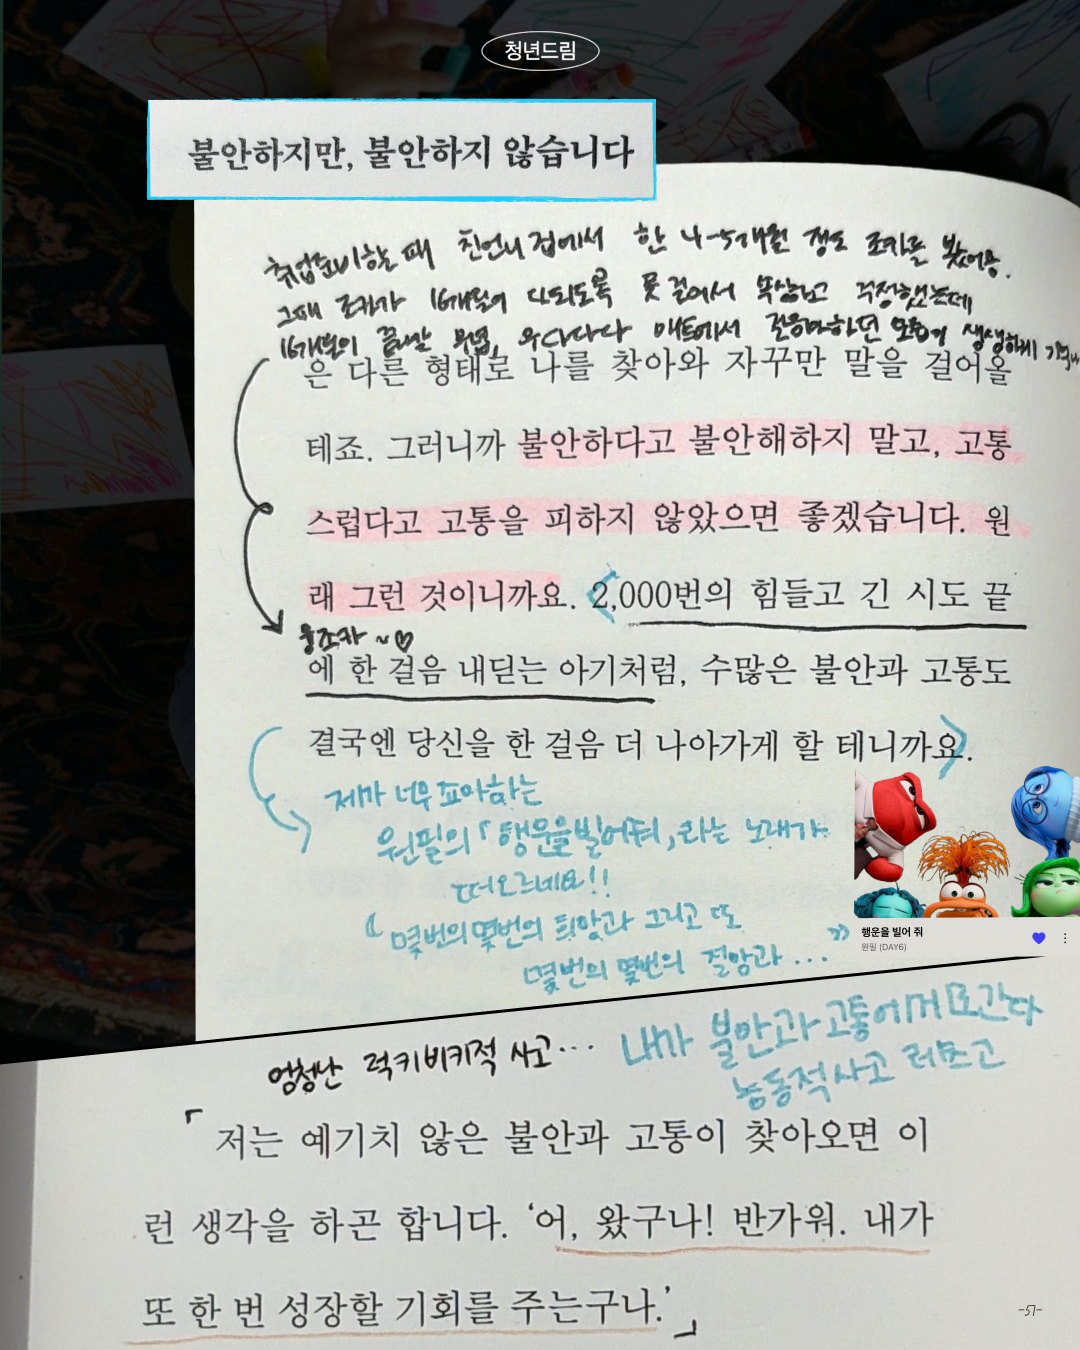 청년드림
불안하지만, 불안하지 않습니다
취업준비하는 때 친언니 집에서 한 4-5개월 정도 조카를 봤어용.
그때 조카가 16개월이 다되도록 못 걸어서 속상하고 걱정했는데
16개월이 끝날 무렵, 우다다다 매트에서 걸음마하던 모습이 생생하게
은 다른 형태로 나를 찾아와 자꾸만 말을 걸어올
테죠. 그러니까 불안하다고 불안해하지 말고, 고통
스럽다고 고통을 피하지 않았으면 좋겠습니다. 원
래 그런 것이니까요. 2,000번의 힘들고 긴 시도 끝
웅조카 ~♡
에 한 걸음 내딛는 아기처럼, 수많은 불안과 고통도
결국엔 당신을 한 걸음 더 나아가게 할 테니까요.
제가 너무 죠아하는
원필의 「행운을 빌어줘」라는 노래가
떠오르네요!!
“몇번의 몇번의 희망과 그리고 또
몇번의 몇번의 절망과 ... ”
행운을 빌어 줘
원필 (DAY6)
엄청난 럭키비키적 사고...
내가 불안과 고통에게 다간다
능동적사고 레츠고
「저는 예기치 않은 불안과 고통이 찾아오면 이
런 생각을 하곤 합니다. ‘어, 왔구나! 반가워. 내가
또 한 번 성장할 기회를 주는구나.’」
-57-